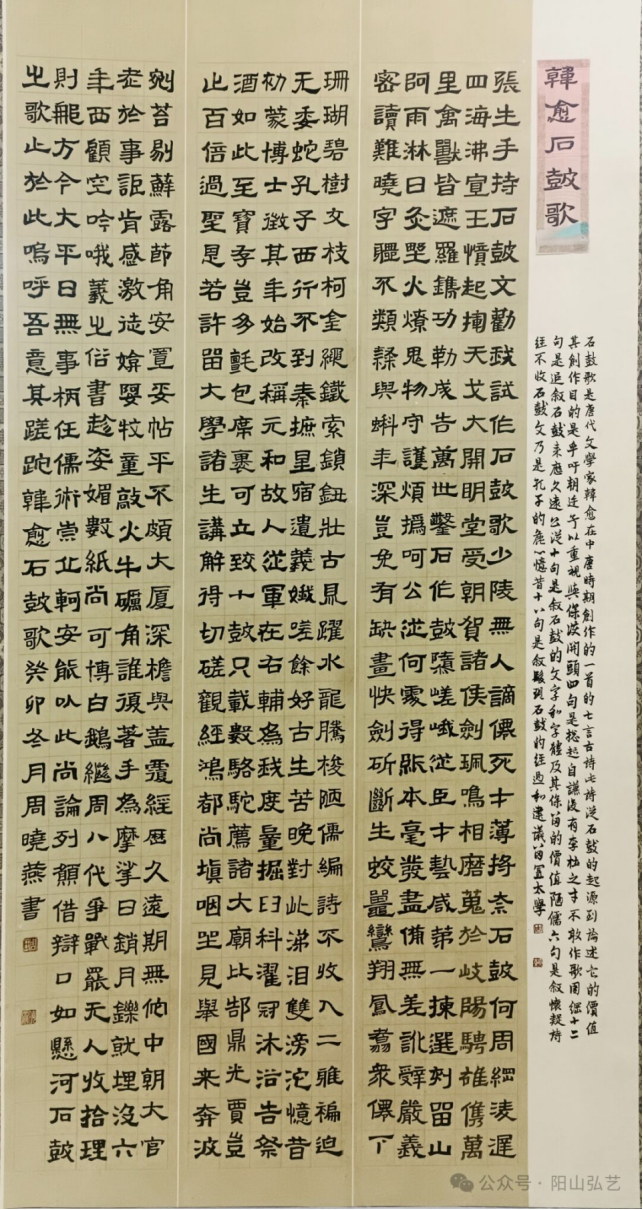 韓愈石鼓歌
石鼓歌是唐代文學家韓愈在中唐時期創作的一首的七言古詩此詩從石鼓的起源到論述它的價值
其創作目的是呼吁朝廷予以重視與保護開頭四句是總起自謙沒有李杜之才不敢作歌周綱十二
句是追叙石鼓来歷久遠公從十句是叙石鼓的文字和字體及其保留的價值陋儒六句是叙懷疑詩
經不收石鼓文乃是孔子的粗心憶昔十八句是叙發現石鼓的經過和建議留置太學
張生手持石鼓文勸我試作石鼓歌少陵無人謫僊死才薄將奈石鼓何周綱淩遲
四海沸宣王憤起揮天戈大開明堂受朝賀諸侯劍珮鳴相磨蒐於岐陽騁雄儁萬
里禽獸皆遮羅鐫功勒成告萬世鑿石作鼓隳嵯峨從臣才藝咸第一揀選刻留山
阿雨淋日灸野火燎鬼物守護煩撝呵公從何處得紙本毫發盡備無差訛辭嚴義
密讀難曉字體不類隸與蝌年深豈免有缺畫快劍斫斷生蛟鼉鸞翔鳳翥衆僊下
珊瑚碧樹交枝柯金繩鐵索鎖鈕壯古鼎躍水龍騰梭陋儒編詩不收入二雅褊迫
无委蛇孔子西行不到秦摭星宿遺義娥嗟餘好古生苦晚對此涕泪雙滂沱憶昔
初蒙博士徵其年始改稱元和故人從軍在右輔為我度量掘臼科濯冠沐浴告祭
酒如此至寶存豈多氈包席裹可立致十鼓只載數駱駝薦諸大廟比郜鼎光賈豈
止百倍過聖恩若許留大學諸生講解得切磋觀經鴻都尚填咽坐見舉國来奔波
剜苔剔蘚露節角安置妥帖平不頗大厦深檐與蓋覆經歷久遠期無佗中朝大官
老於事詎肯感激徒媕娿牧童敲火牛礪角誰復著手為摩挲日銷月鑠就埋沒六
年西顧空吟哦義之俗書趁姿媚數紙尚可博白鵝繼周八代爭戰罷无人收拾理
則那方今大平日無事柄任儒術崇丘軻安能以此尚論列願借辯口如懸河石鼓
之歌止於此嗚呼吾意其蹉跎韓愈石鼓歌癸卯冬月周曉燕書
公众号·阳山弘艺